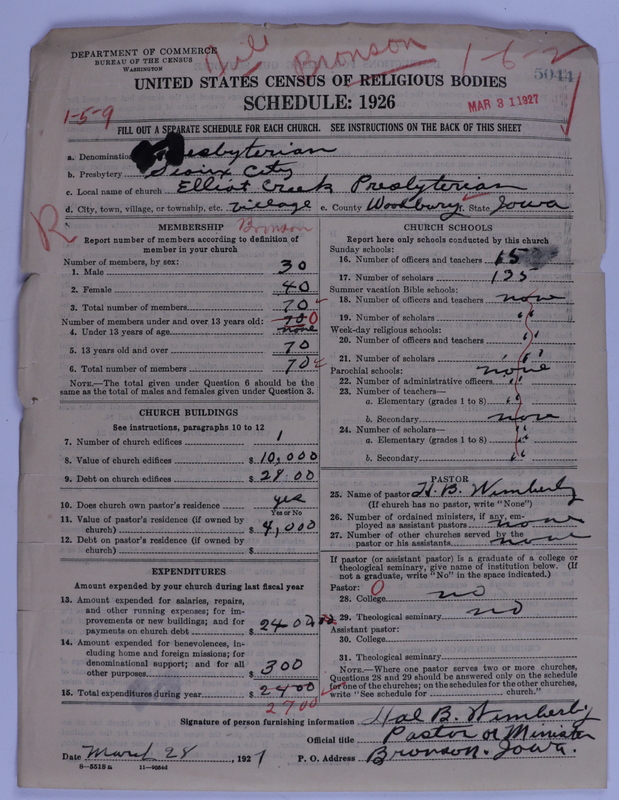 Hall Bronson 1-6-2
DEPARTMENT OF COMMERCE
BUREAU OF THE CENSUS
WASHINGTON
5044
UNITED STATES CENSUS OF RELIGIOUS BODIES
SCHEDULE: 1926
MAR 31 1927
1-5-9
FILL OUT A SEPARATE SCHEDULE FOR EACH CHURCH. SEE INSTRUCTIONS ON THE BACK OF THIS SHEET
a. Denomination Presbyterian
b. Presbytery Sioux City
c. Local name of church Elliot Creek Presbyterian
d. City, town, village, or township, etc. Village e. County Woodbury f. State Iowa
R
Bronson
MEMBERSHIP
Report number of members according to definition of
member in your church
Number of members, by sex:
1. Male 30
2. Female 40
3. Total number of members 70
Number of members under and over 13 years old: 70 0
4. Under 13 years of age none
5. 13 years old and over 70
6. Total number of members 70
NOTE.—The total given under Question 6 should be the
same as the total of males and females given under Question 3.
CHURCH BUILDINGS
See instructions, paragraphs 10 to 12
7. Number of church edifices 1
8. Value of church edifices $ 10,000
9. Debt on church edifices $ 28.00
10. Does church own pastor's residence yes
Yes or No
11. Value of pastor's residence (if owned by
church) $ 4,000
12. Debt on pastor's residence (if owned by
church) $
EXPENDITURES
Amount expended by your church during last fiscal year
13. Amount expended for salaries, repairs,
and other running expenses; for im-
provements or new buildings; and for
payments on church debt $ 2400
14. Amount expended for benevolences, in-
cluding home and foreign missions; for
denominational support; and for all
other purposes $ 300
15. Total expenditures during year $ 2400
2700
CHURCH SCHOOLS
Report here only schools conducted by this church
Sunday schools:
16. Number of officers and teachers 15
17. Number of scholars 125
Summer vacation Bible schools:
18. Number of officers and teachers none
19. Number of scholars "
Week-day religious schools:
20. Number of officers and teachers "
21. Number of scholars "
Parochial schools: none
22. Number of administrative officers "
23. Number of teachers—
a. Elementary (grades 1 to 8) "
b. Secondary none
24. Number of scholars—
a. Elementary (grades 1 to 8) "
b. Secondary "
PASTOR
25. Name of pastor H. B. Wimberly
(If church has no pastor, write "None")
26. Number of ordained ministers, if any, em-
ployed as assistant pastors none
27. Number of other churches served by the
pastor or his assistants none
If pastor (or assistant pastor) is a graduate of a college or
theological seminary, give name of institution below. (If
not a graduate, write "No" in the space indicated.)
Pastor: 0
28. College no
29. Theological seminary no
Assistant pastor:
30. College
31. Theological seminary
NOTE.—Where one pastor serves two or more churches,
Questions 28 and 29 should be answered only on the schedule
for one of the churches; on the schedules for the other churches,
write "See schedule for church."
Signature of person furnishing information Hal B. Wimberly
Official title Pastor or Minister
Date March 28, 1927 P. O. Address Bronson. Iowa.
8—5518a 11—9054d